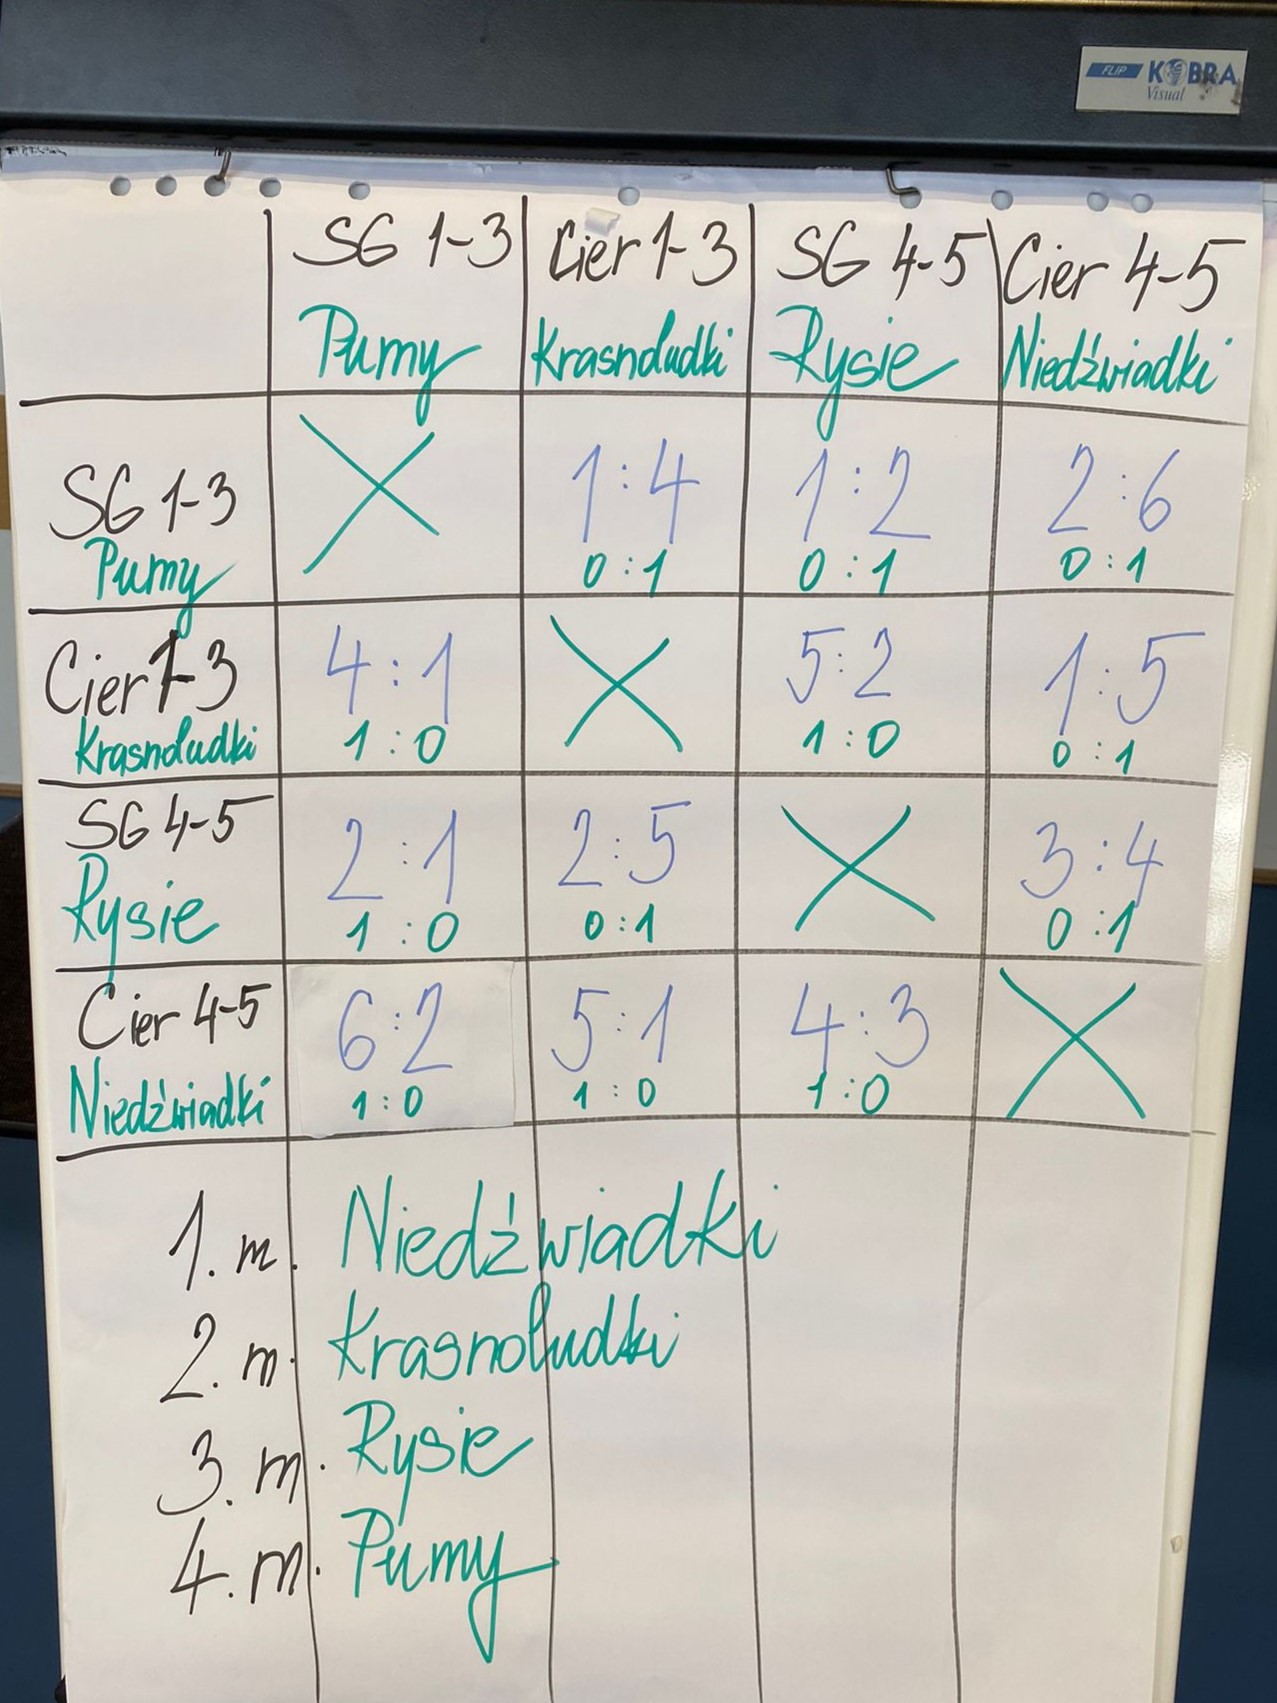 FLIP KOBRA
Visual
SG 1-3 Cier 1-3 SG 4-5 Cier 4-5
Pumy Krasnoludki Rysie Niedźwiadki
SG 1-3 1:4 1:2 2:6
Pumy 0:1 0:1 0:1
Cier 1-3 4:1 5:2 1:5
Krasnoludki 1:0 1:0 0:1
SG 4-5 2:1 2:5 3:4
Rysie 1:0 0:1 0:1
Cier 4-5 6:2 5:1 4:3
Niedźwiadki 1:0 1:0 1:0
1. m. Niedźwiadki
2. m. Krasnoludki
3. m. Rysie
4. m. Pumy